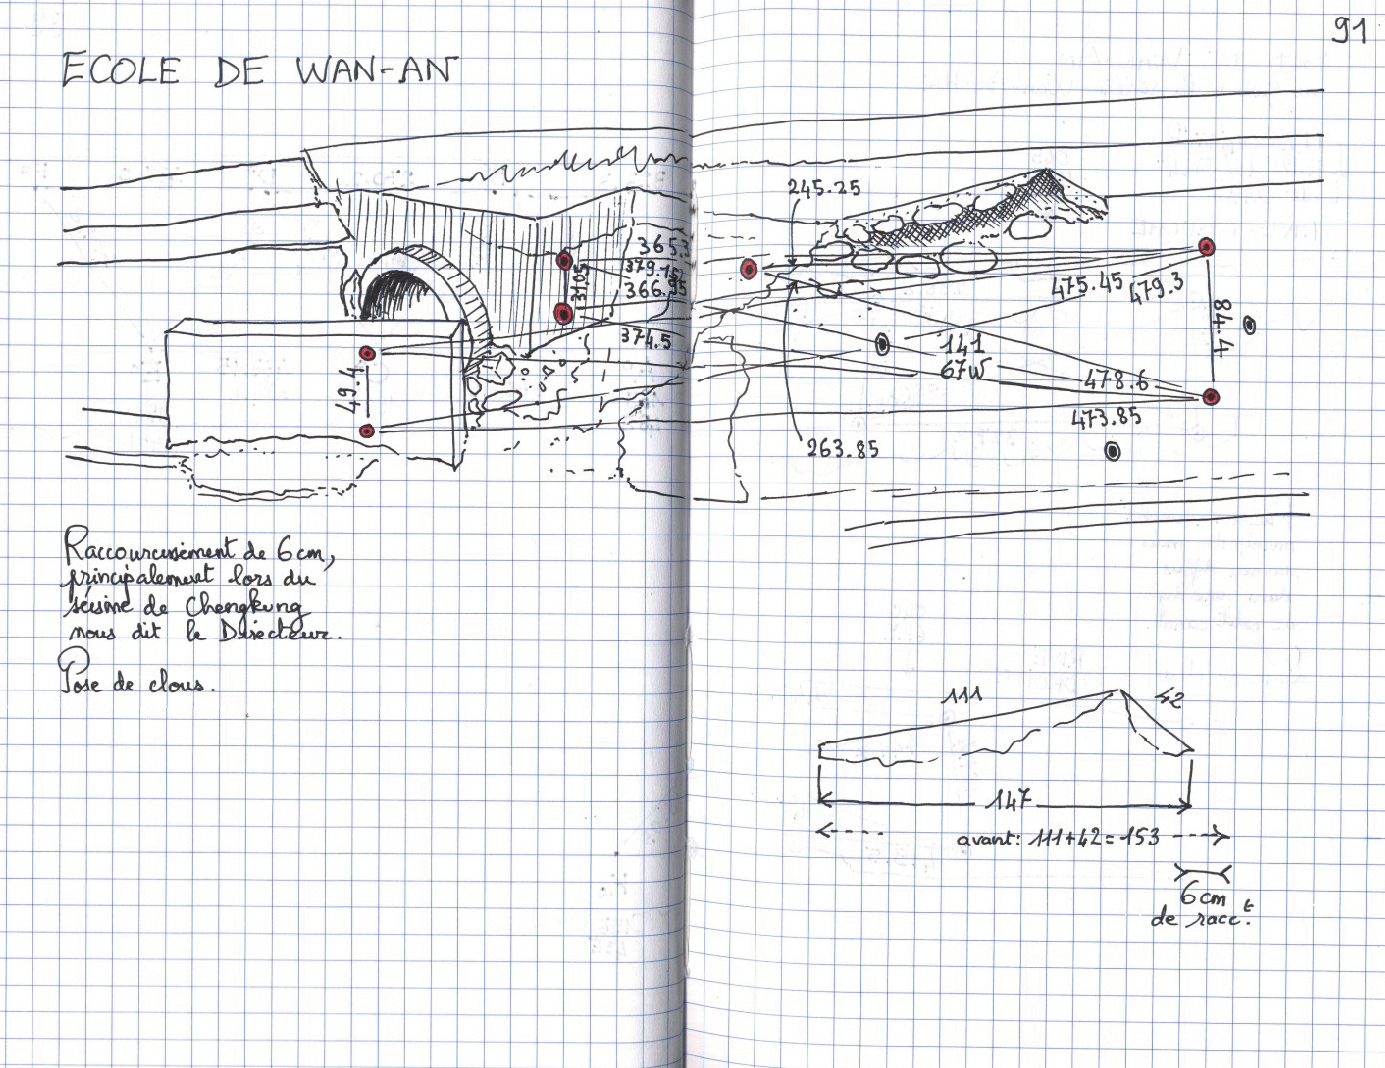 91
ECOLE DE WAN-AN
245.25
365.3
379.15
366.95
31.05
374.5
475.45
479.3
84.4
141
67W
49.4
478.6
473.85
263.85
Raccourcissement de 6cm,
principalement lors du
séisme de Chengkung
nous dit le Directeur.
Pose de clous.
111
42
147
avant: 111+42=153
6cm
de racc.t